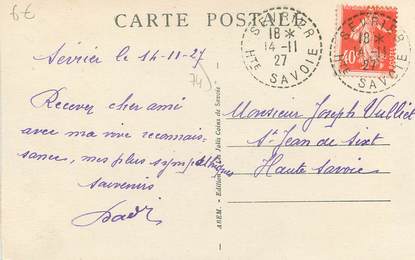 6€
CARTE POSTALE
SEVRIER
18 *
14-11
27
Hte SAVOIE
SEVRIER
18 *
14-11
27
Hte SAVOIE
Sévrier le 14-11-27
74)
Recevez cher ami
avec ma vive reconnais-
sance, mes plus sympathiques
souvenirs
Monsieur Joseph Vulliet
St Jean de Sixt
Haute Savoie
ABEM. - Edition des Jolis Coins de Savoie